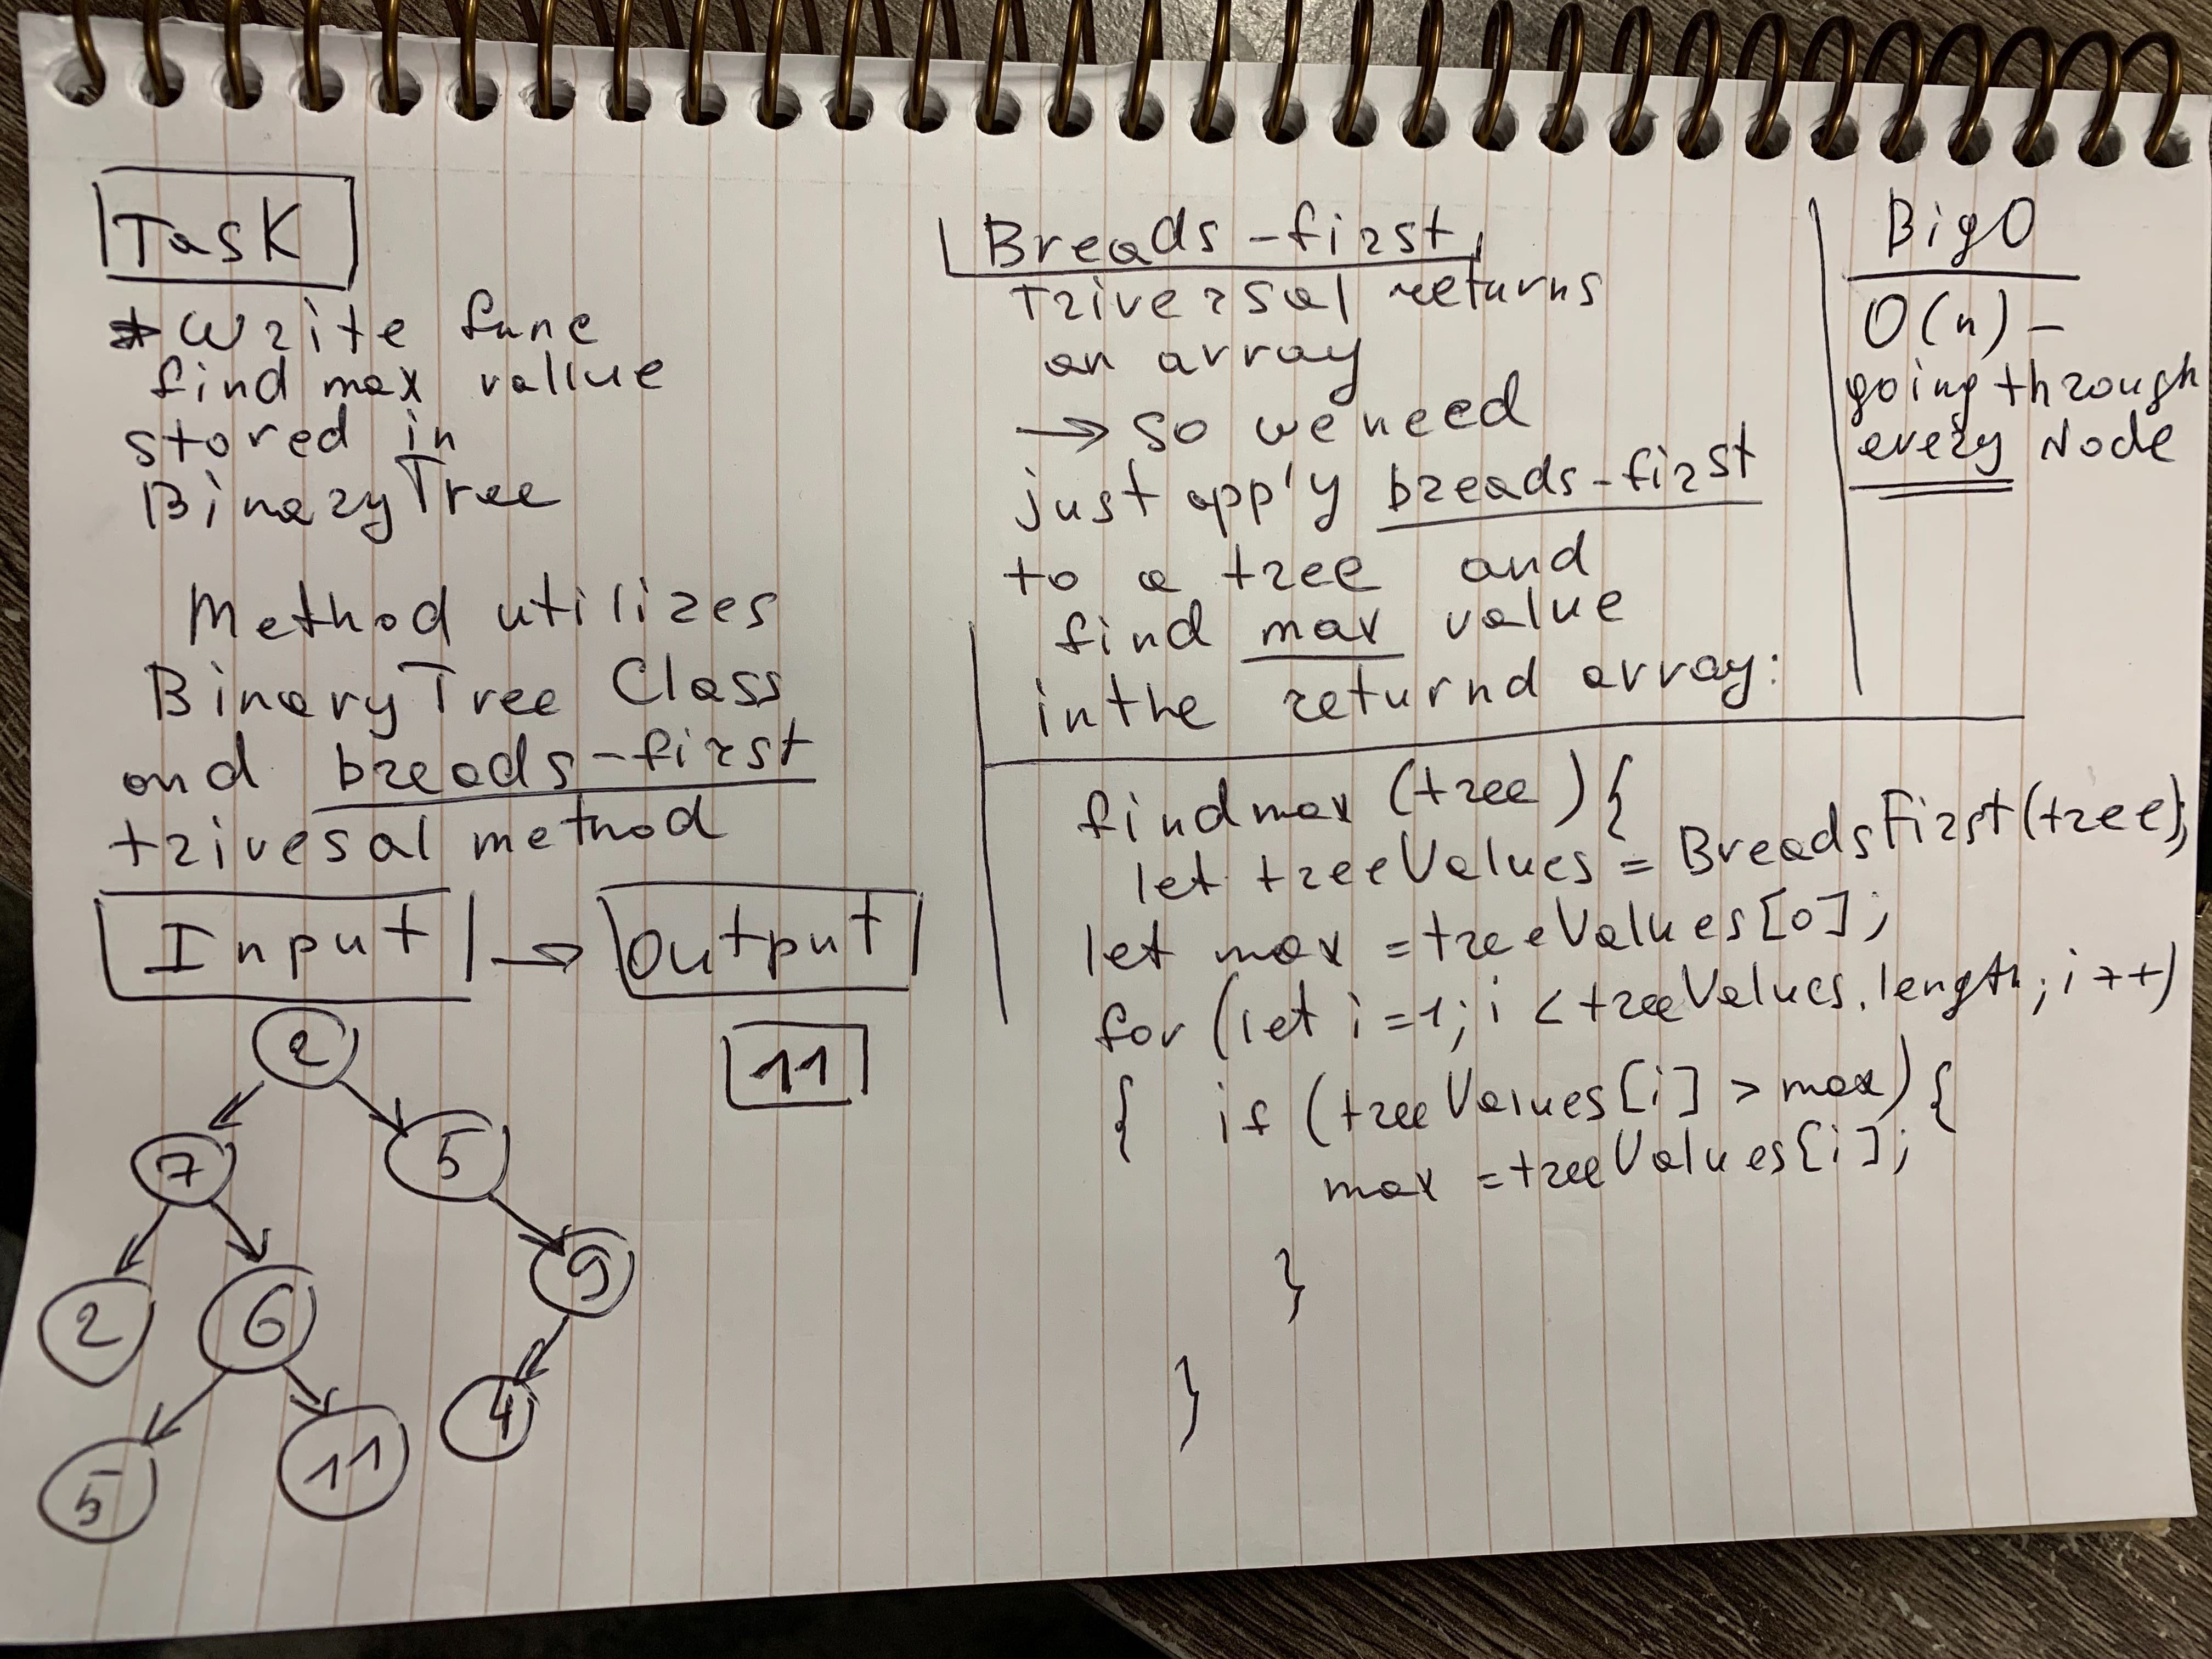 Task
* Write func
find max vallue
stored in
BinaryTree
Method utilizes
BinaryTree Class
and breads-first
trivesal method
Input → Output
11
2
7 5
2 6 9
5 11 4
Breads-first
Triversal returns
an array
→ so we need
just app'y breads-first
to a tree and
find max value
in the returnd array:
findmax (tree) {
let treeValues = BreadsFirst(tree);
let max = treeValues[0];
for (let i=1; i < treeValues.length; i++)
{ if (treeValues[i] > max) {
max = treeValues[i];
}
}
Big O
O(n) –
going through
every Node